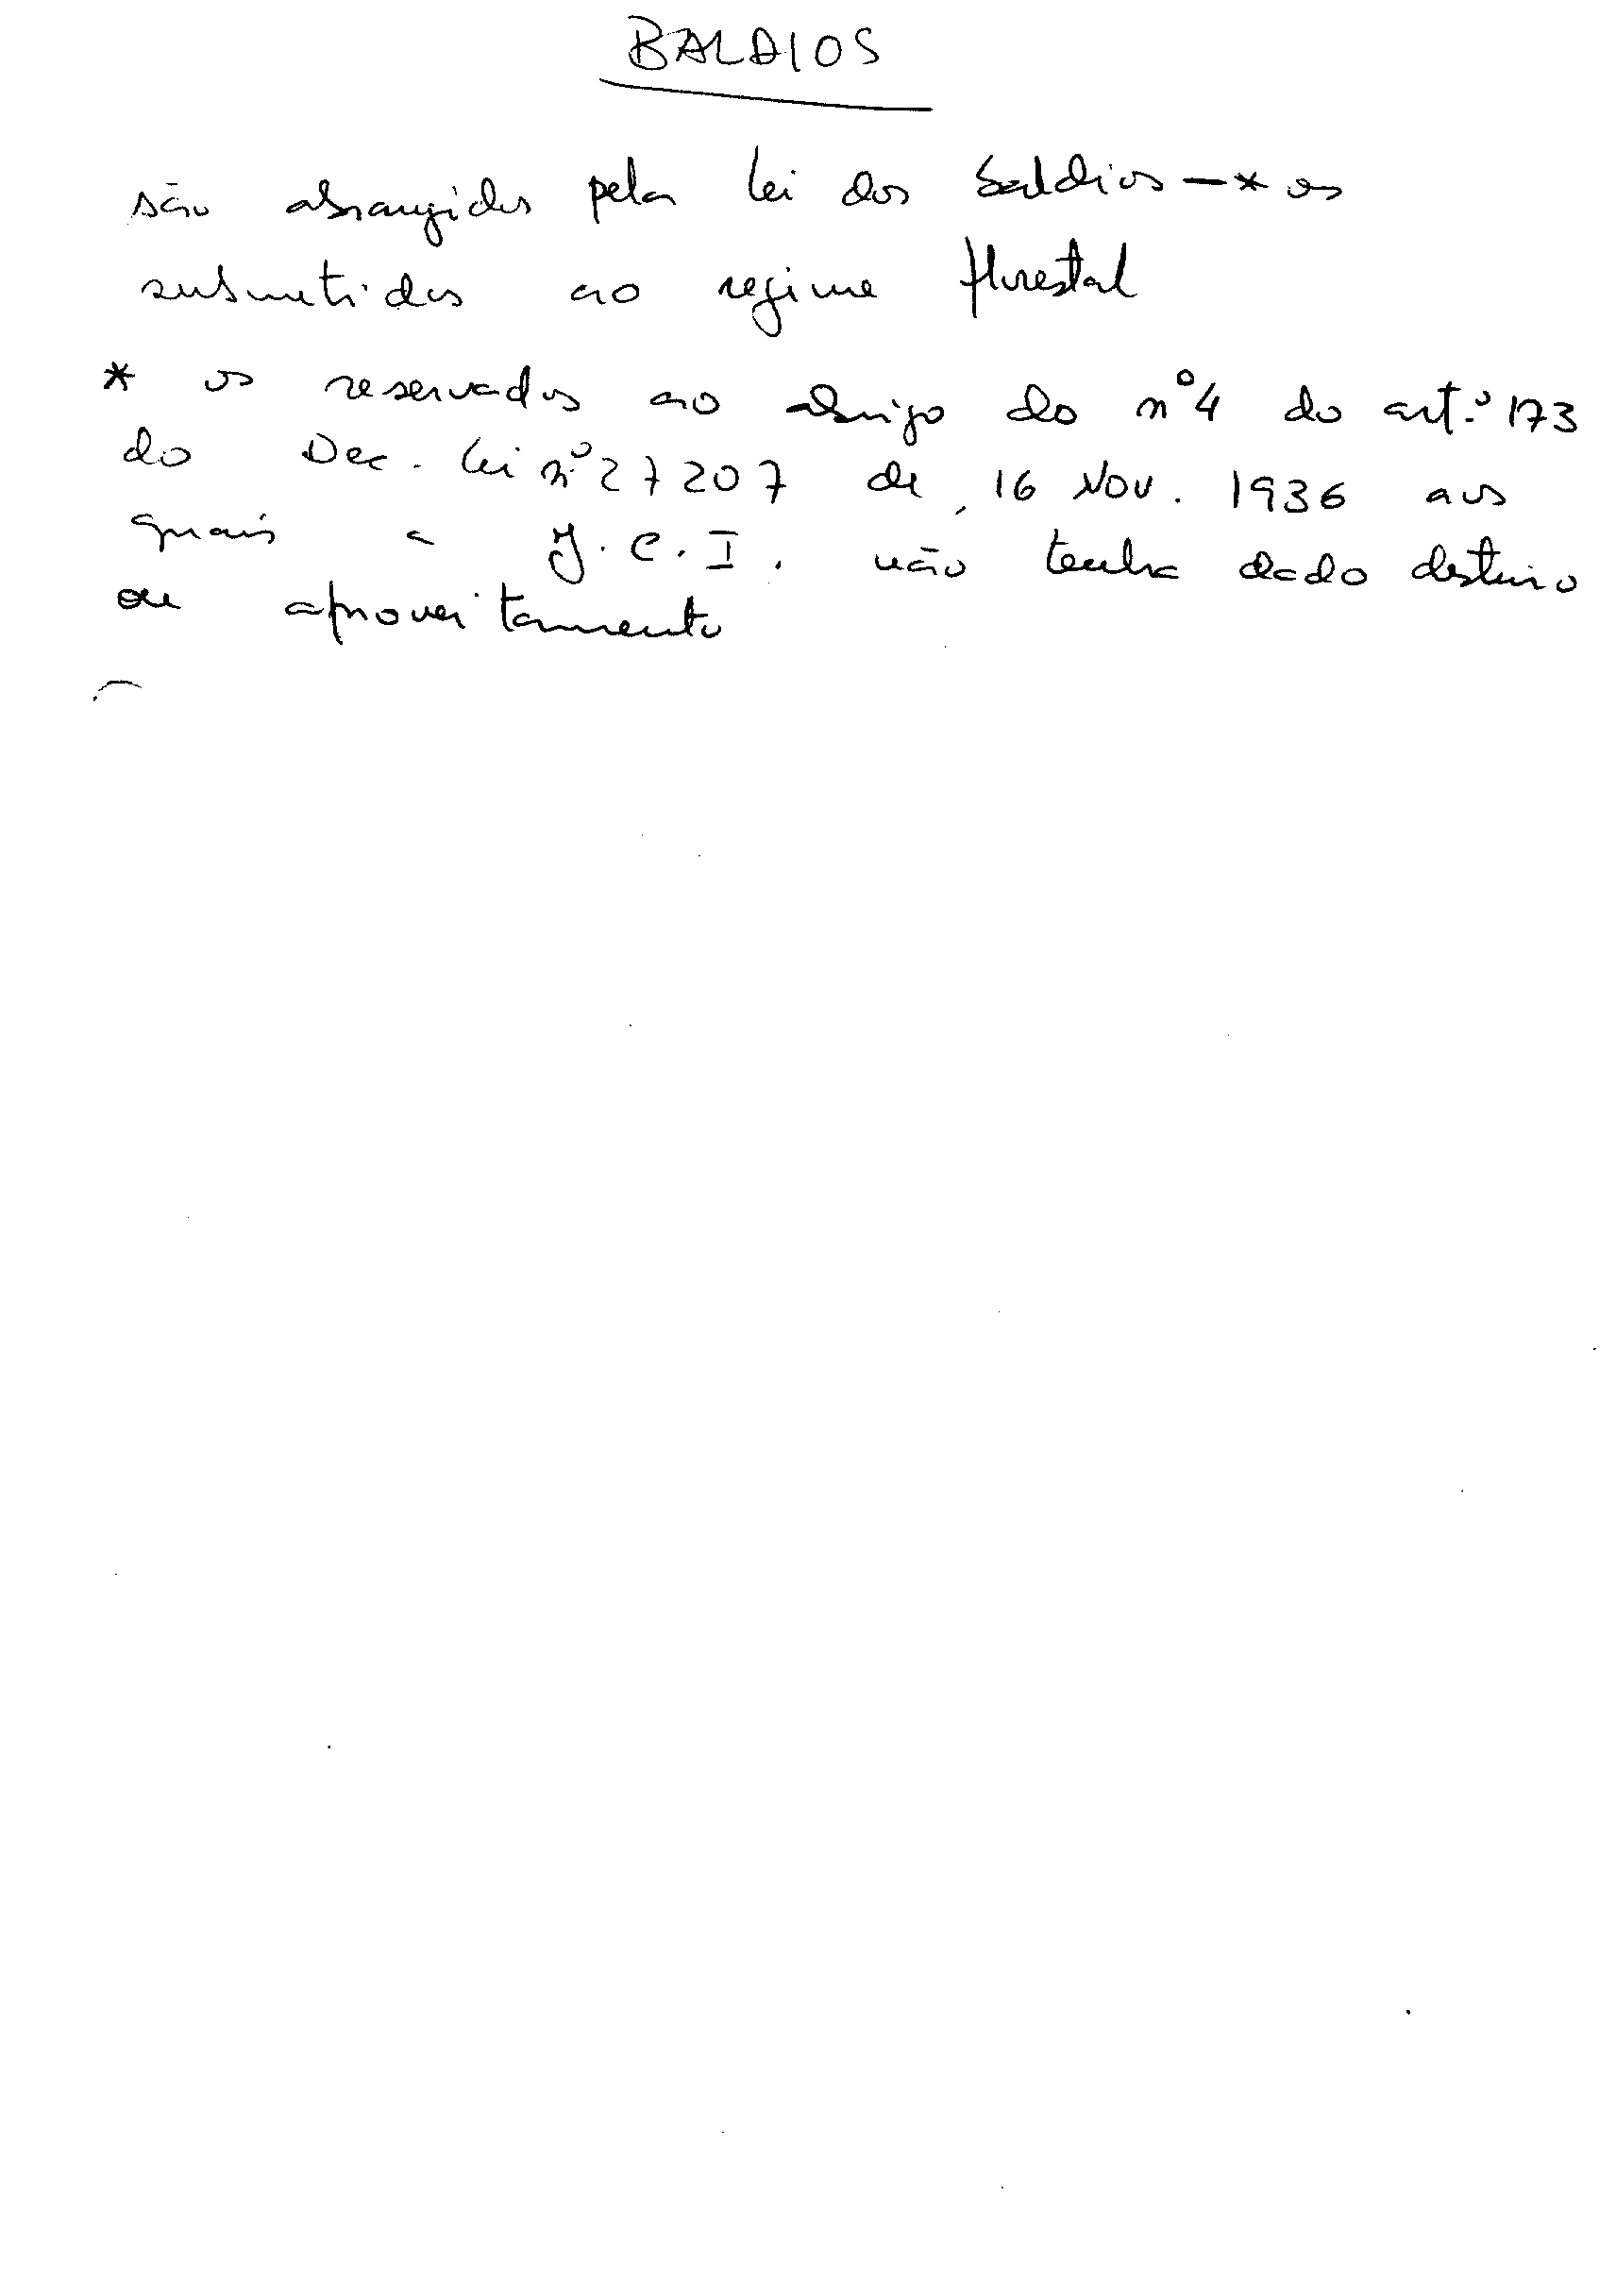 BALDIOS
são abrangidos pela lei dos baldios — * os
submetidos ao regime florestal
* os reservados ao abrigo do nº 4 do art.º 173
do Dec. lei nº 27207 de, 16 Nov. 1936 aos
quais a J.C.I. não tenha dado destino
ou aproveitamento